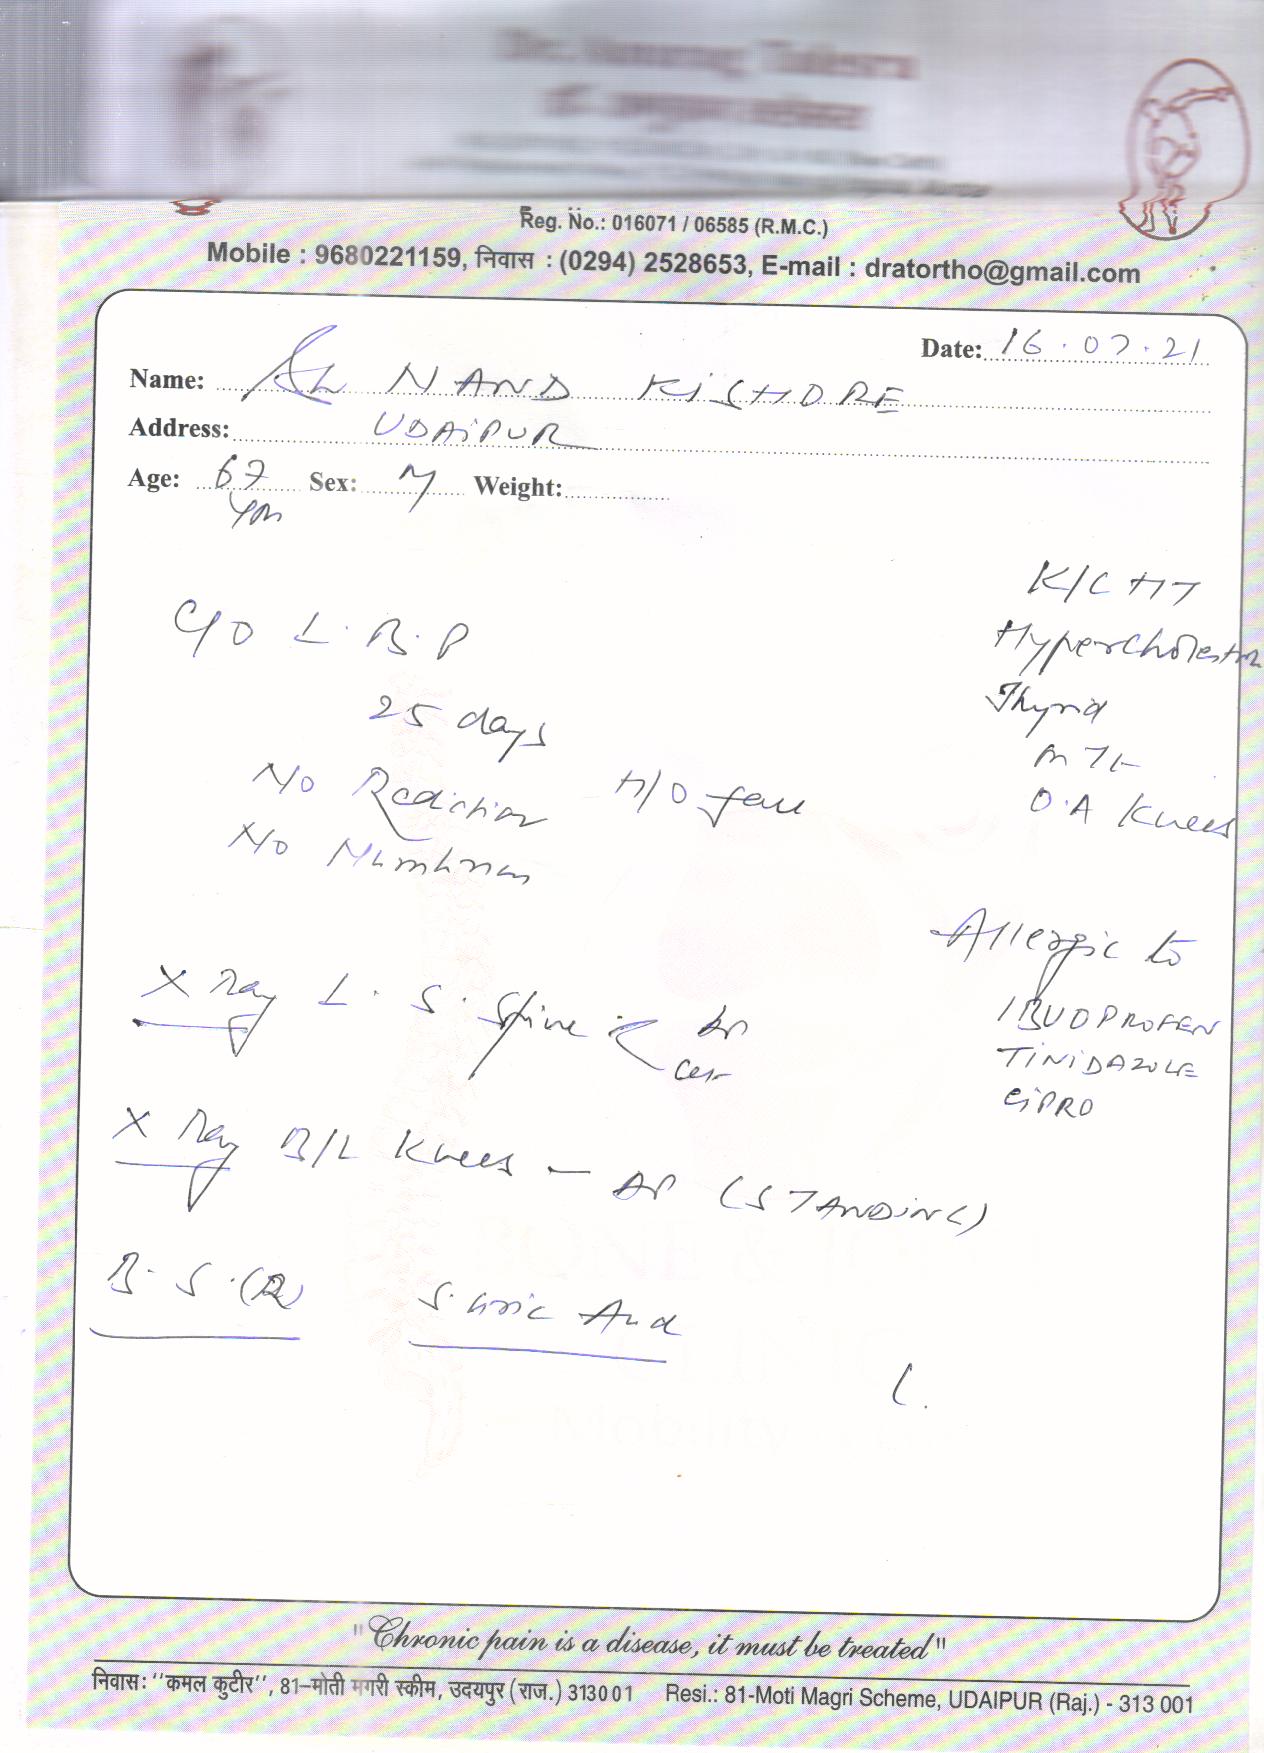 Reg. No.: 016071 / 06585 (R.M.C.)
Mobile : 9680221159, निवास : (0294) 2528653, E-mail : dratortho@gmail.com
Date: 16.07.21
Name: NAND KISHORE
Address: UDAIPUR
Age: 67 Yrs Sex: M Weight:
K/C HT
C/O L.B.P
Hypercholestr
25 days
Thyroid
No Radiation H/O fall
O.A Knees
No Numbness
Allergic to
X Ray L.S. Spine
AP
IBUOPROFEN
TINIDAZOLE
CIPRO
X Ray B/L Knees - AP (STANDING)
B.S.(R) S. Uric Acid
"Chronic pain is a disease, it must be treated"
निवास: "कमल कुटीर", 81-मोती मगरी स्कीम, उदयपुर (राज.) 313001 Resi.: 81-Moti Magri Scheme, UDAIPUR (Raj.) - 313 001